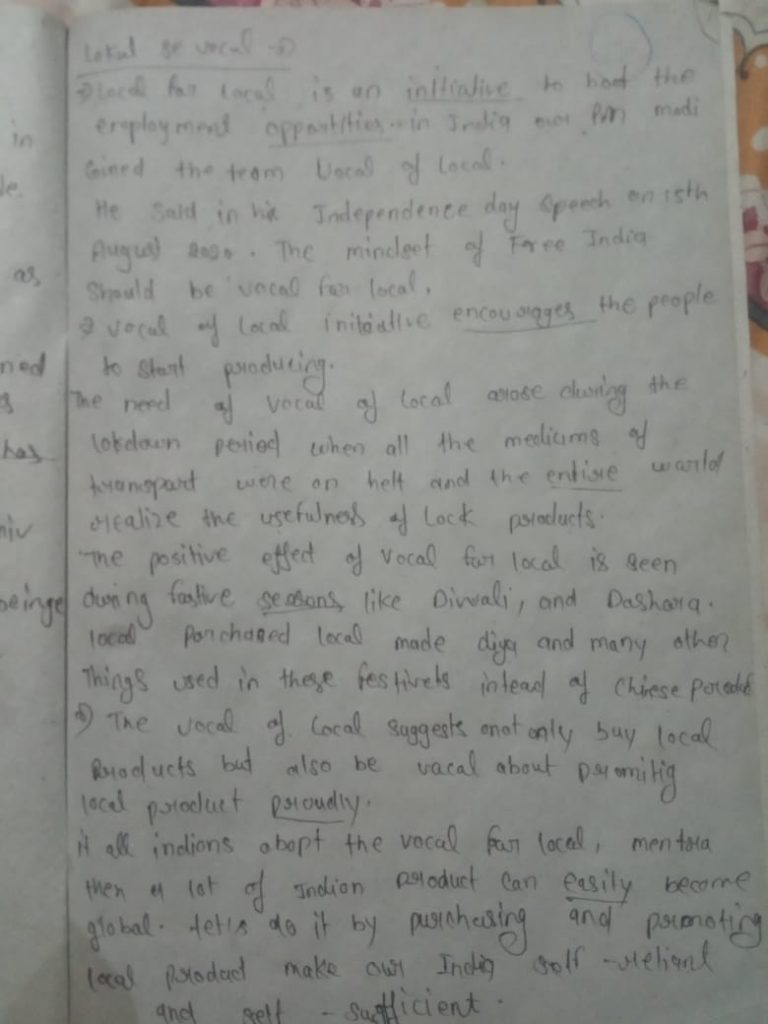 Lokal or vocal →
→ Local for local is an initiative to boot the
employment oppartities in India our PM modi
Coined the team Vocal of local.
He Said in his Independence day Speech on 15th
August 2020. The mindset of Free India
Should be vocal for local.
→ vocal of local initiative encourages the people
to start producing.
The need of vocal of local arose during the
lokdown period when all the mediums of
transport were on helt and the entire world
realize the usefulness of Lock products.
The positive effect of vocal for local is seen
during fastive seasons, like Diwali, and Dashara.
local parchased local made diya and many other
Things used in these festivels intead of Chinese
→ The vocal of local suggests not only buy local
Products but also be vacal about promitig
local product proudly.
it all indions abopt the vocal for local, mentra
then a lot of Indian product can easily become
global. let's do it by purchesing and promoting
local product make our India self-reliant
and self-sufficient.
in
as
has
beinge